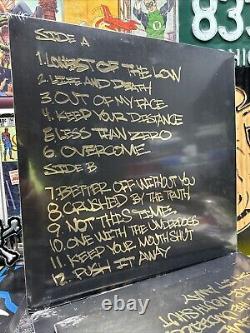 83
SIDE A
1. LOWEST OF THE LOW
2. LIFE AND DEATH
3. OUT OF MY FACE
4. KEEP YOUR DISTANCE
5. LESS THAN ZERO
6. OVERCOME
SIDE B
7. BETTER OFF WITHOUT YOU
8. CRUSHED BY THE TRUTH
9. NOT THIS TIME
10. ONE WITH THE UNDERDOGS
11. KEEP YOUR MOUTH SHUT
12. PUSH IT AWAY